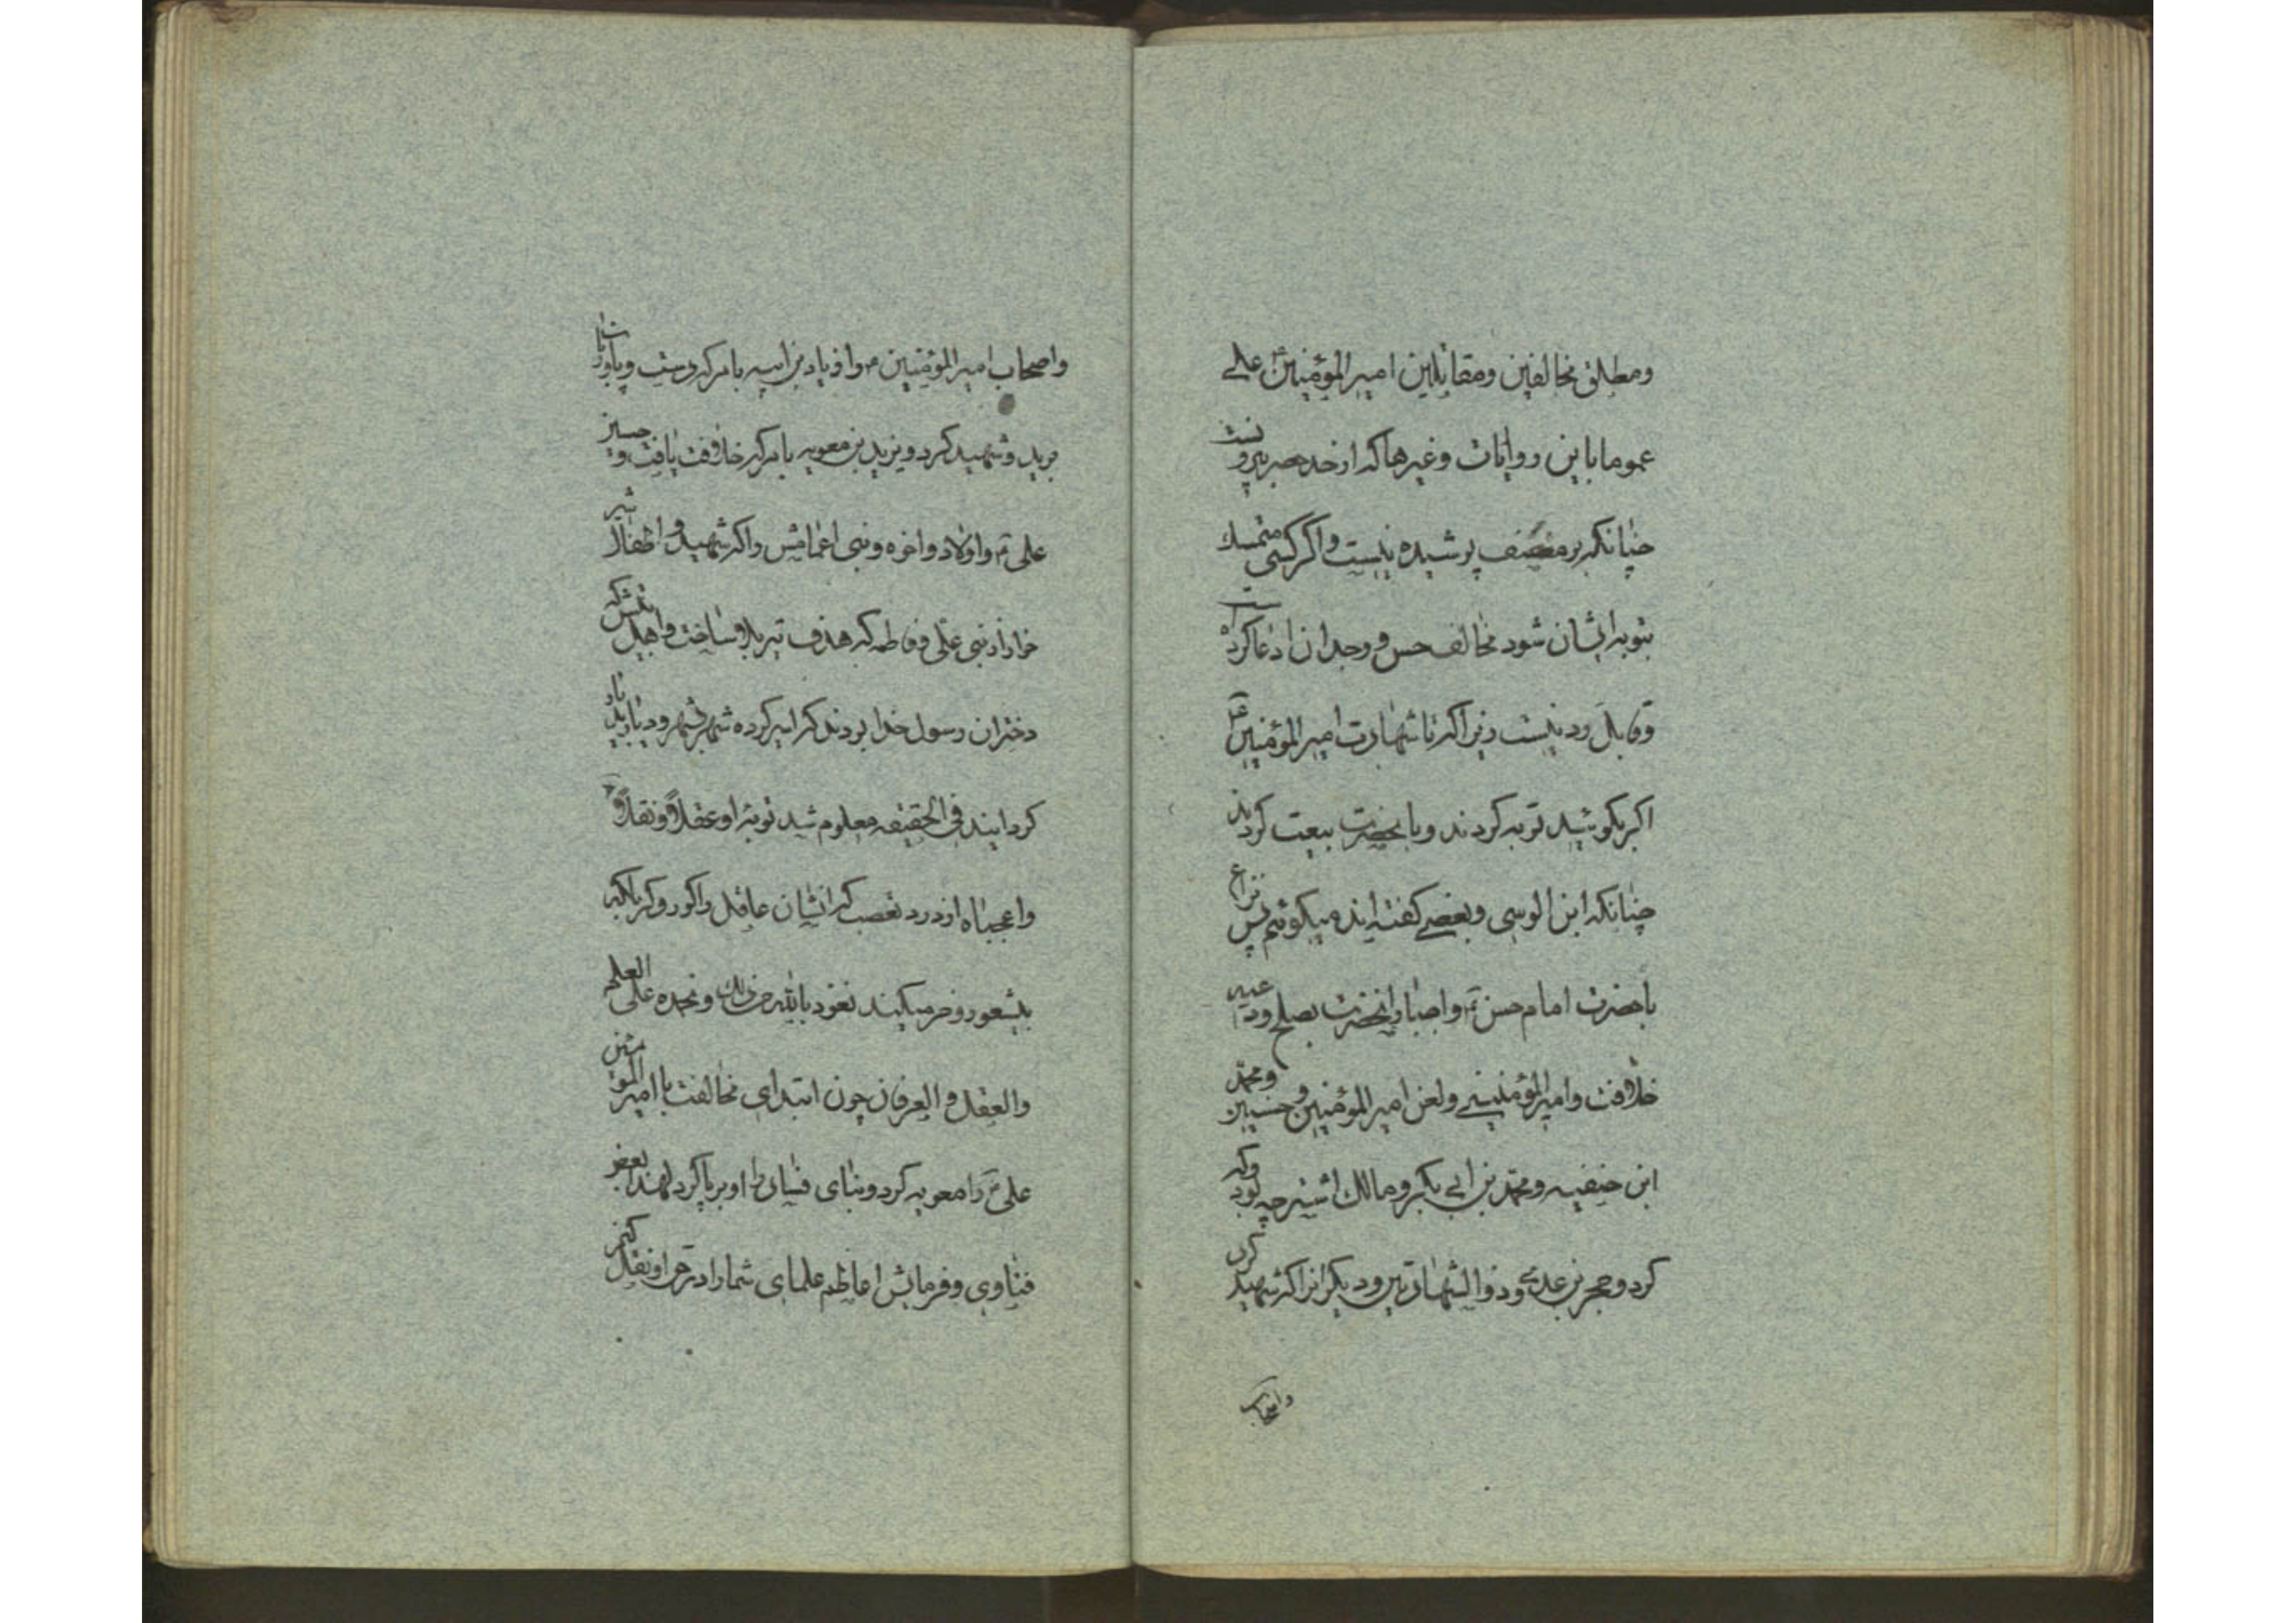 ومطلق مخالفین ومقاتلین امیر المؤمنین علی
عموما باین روایات وغیرها که از حد حصر بیرونست
چنانکه بر مصنف پوشیده نیست واگر کسی متمسک
بتوبه ایشان شود مخالف حس و وجدان ادعا کرده است
وقابل رد نیست زیرا که تا شهادت امیر المؤمنین ع
اکر بکوئید توبه کردند وبا انحضرت بیعت کردند
چنانکه ابن الوسی وبعضی کفته اند میکوئیم پس نزاع
با حضرت امام حسن ع واجبار انحضرت بصلح ودعیه
خلافت وامیر المؤمنینی ولعن امیر المؤمنین وحسنین ومحمد
ابن حنفیه ومحمد بن ابی بکر ومالک اشتر چه بود وکه
کرد وحجر بن عدی وذو الشهادتین ودیکران را که شهید کرد
واصحاب
واصحاب امیر المؤمنین ع را زیاد بن ابیه بامر که دست وپا
برید وشهید کرد ویزید بن معویه بامر که خلافت یافت وحسین
علی ع واولاد واخوه وبنی اعمامش را که شهید و اطفال
خوار از بنی علی وفاطمه که هدف تیر بلا ساخت واهل
دختران رسول خدا بودند که اسیر کرده شهر بشهر ودیار بدیار
کردانیدند فی الحقیقه معلوم شد توبه او عقلا ونقلا
واعجباه از درد تعصب که انسان عاقل را کور وکر بلکه
بیشعور وخر میکند نعوذ بالله من ذلک ونحمده علی العلم
والعقل والعرفان چون ابتدای مخالفت با امیر المؤمنین
علی ع را معویه کرد وبنای فساد را او برپا کرد لهذا بعض
فتاوی وفرمایش اعاظم علمای شما را در حق او نقل کنم